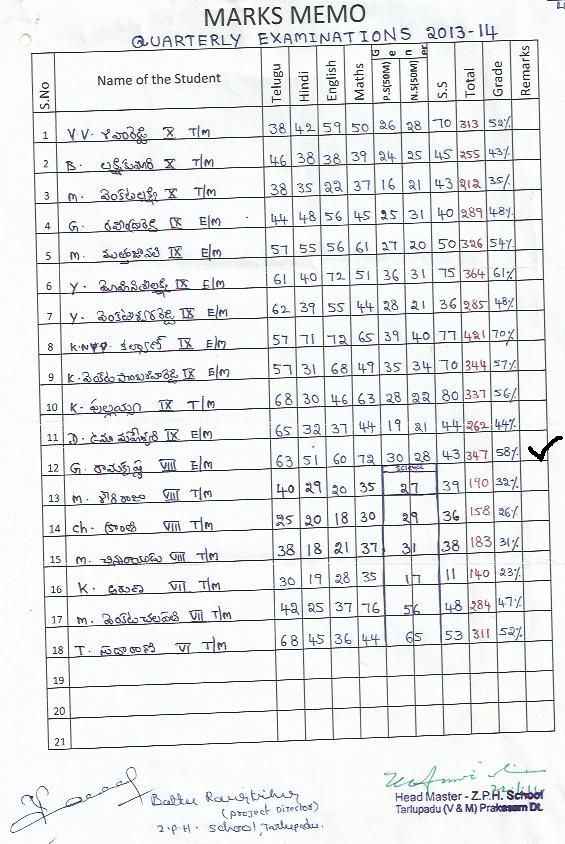 MARKS MEMO
QUARTERLY EXAMINATIONS 2013-14
S.No Name of the Student Telugu Hindi English Maths Gener P.S(50M) N.S(50M) S.S Total Grade Remarks
1 V.V. X T/M 38 42 59 50 26 28 70 313 52%
2 B. X T/M 46 38 38 39 24 25 45 255 43%
3 M. వెంకటలక్ష్మి X T/M 38 35 22 37 16 21 43 212 35%
4 G. IX E/M 44 48 56 45 25 31 40 289 48%
5 M. IX E/M 57 55 56 61 27 20 50 326 54%
6 Y. IX E/M 61 40 72 51 36 31 75 364 61%
7 Y. వెంకటేశ్వరరెడ్డి IX E/M 62 39 55 44 28 21 36 285 48%
8 కళ్యాణ్ IX E/M 57 71 72 65 39 40 77 421 70%
9 K. IX E/M 57 31 68 49 35 34 70 344 57%
10 K. పుల్లయ్య IX T/M 68 30 46 63 28 22 80 337 56%
11 D. ఉమామహేశ్వరి IX E/M 65 32 37 44 19 21 44 262 44%
12 G. రామకృష్ణ VIII E/M 63 51 60 72 30 28 43 347 58% ✓
Science
13 M. శౌరిరాజు VIII T/M 40 29 20 35 27 39 190 32%
14 Ch. క్రాంతి VIII T/M 25 20 18 30 29 36 158 26%
15 M. చినరాయుడు VIII T/M 38 18 21 37 31 38 183 31%
16 K. అరుణ VII T/M 30 19 28 35 17 11 140 23%
17 M. వెంకటచలపతి VII T/M 42 25 37 76 56 48 284 47%
18 T. సుధారాణి VI T/M 68 45 36 44 65 53 311 52%
19
20
21
(Project Director)
Z.P.H. School, Tarlupadu.
Head Master - Z.P.H. School
Tarlupadu (V & M) Prakasam Dt.